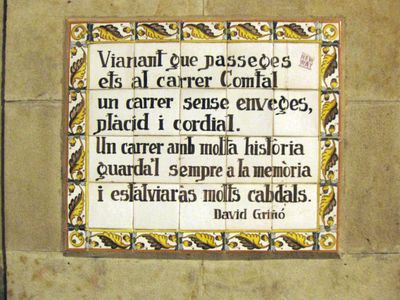 Vianant que passeges
ets al carrer Comtal
un carrer sense enveges,
plàcid i cordial.
Un carrer amb molta història
guarda'l sempre a la memòria
i estalviaràs molts cabdals.
David Griñó